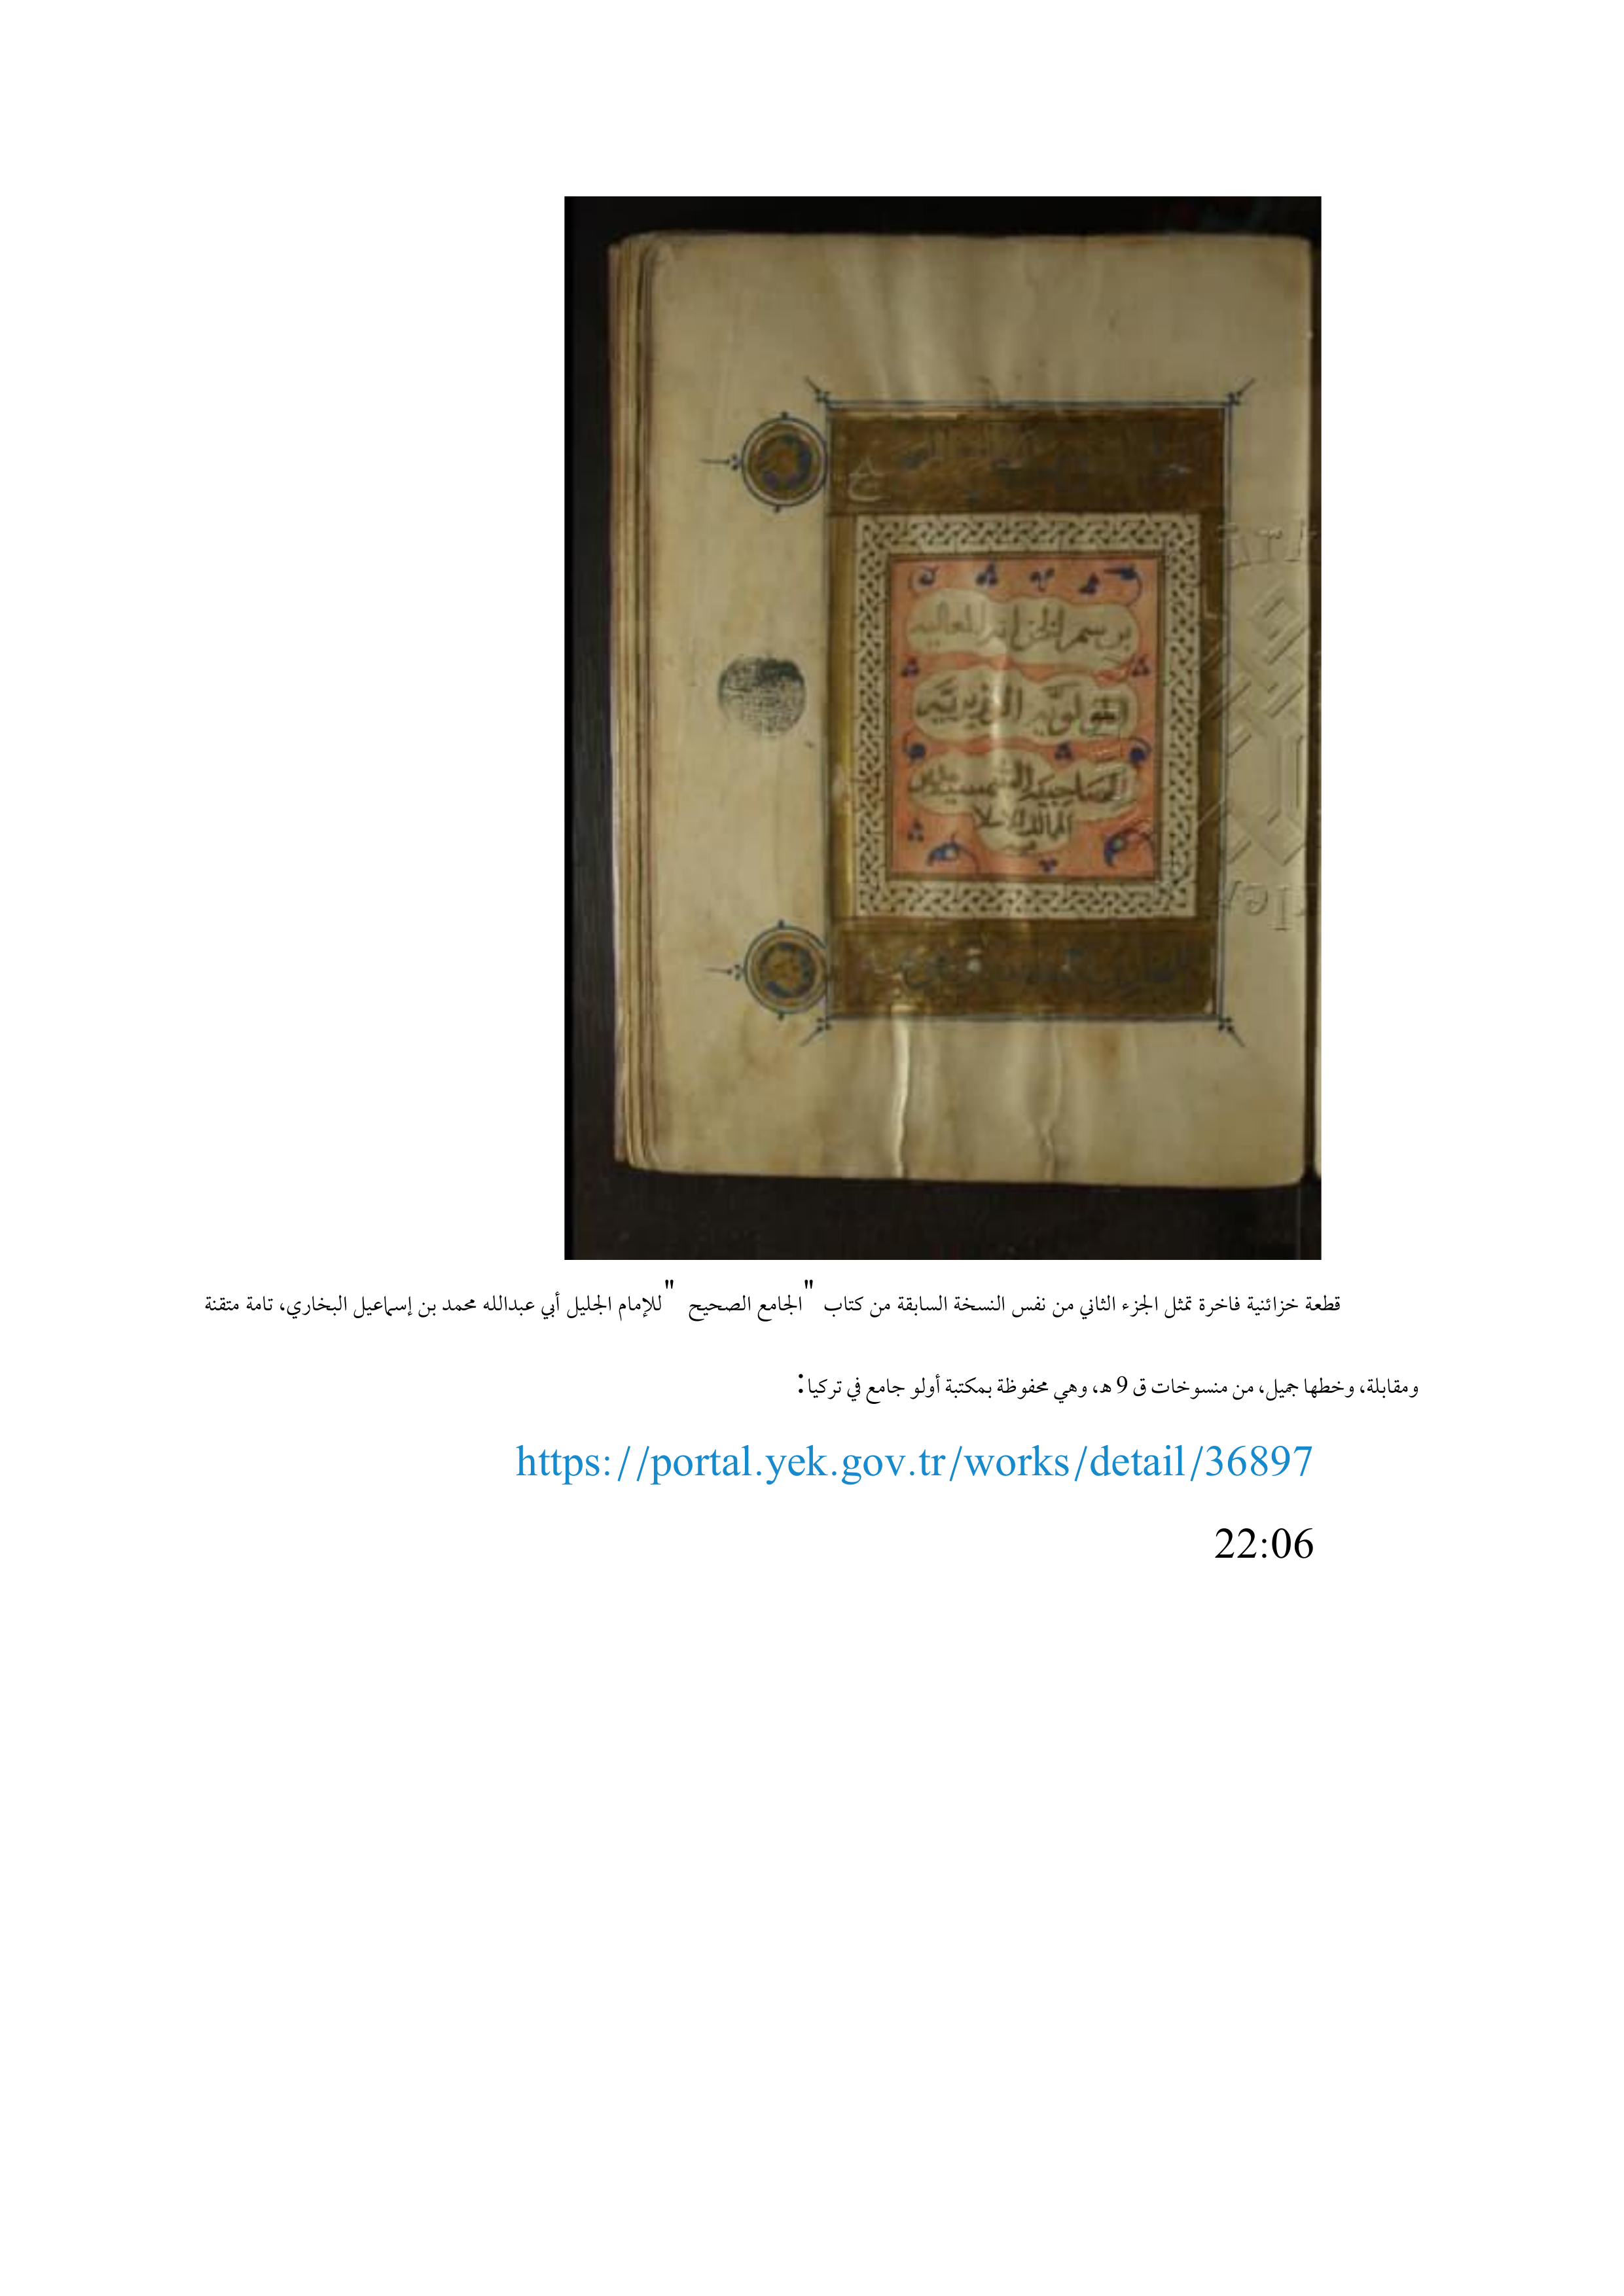 برسم الخزانة العالية
المولوية الوزيرية
الصاحبية الشمسية
قطعة خزائنية فاخرة تمثل الجزء الثاني من نفس النسخة السابقة من كتاب "الجامع الصحيح" للإمام الجليل أبي عبدالله محمد بن إسماعيل البخاري، تامة متقنة
ومقابلة، وخطها جميل، من منسوخات ق 9 هـ، وهي محفوظة بمكتبة أولو جامع في تركيا:
https://portal.yek.gov.tr/works/detail/36897
22:06